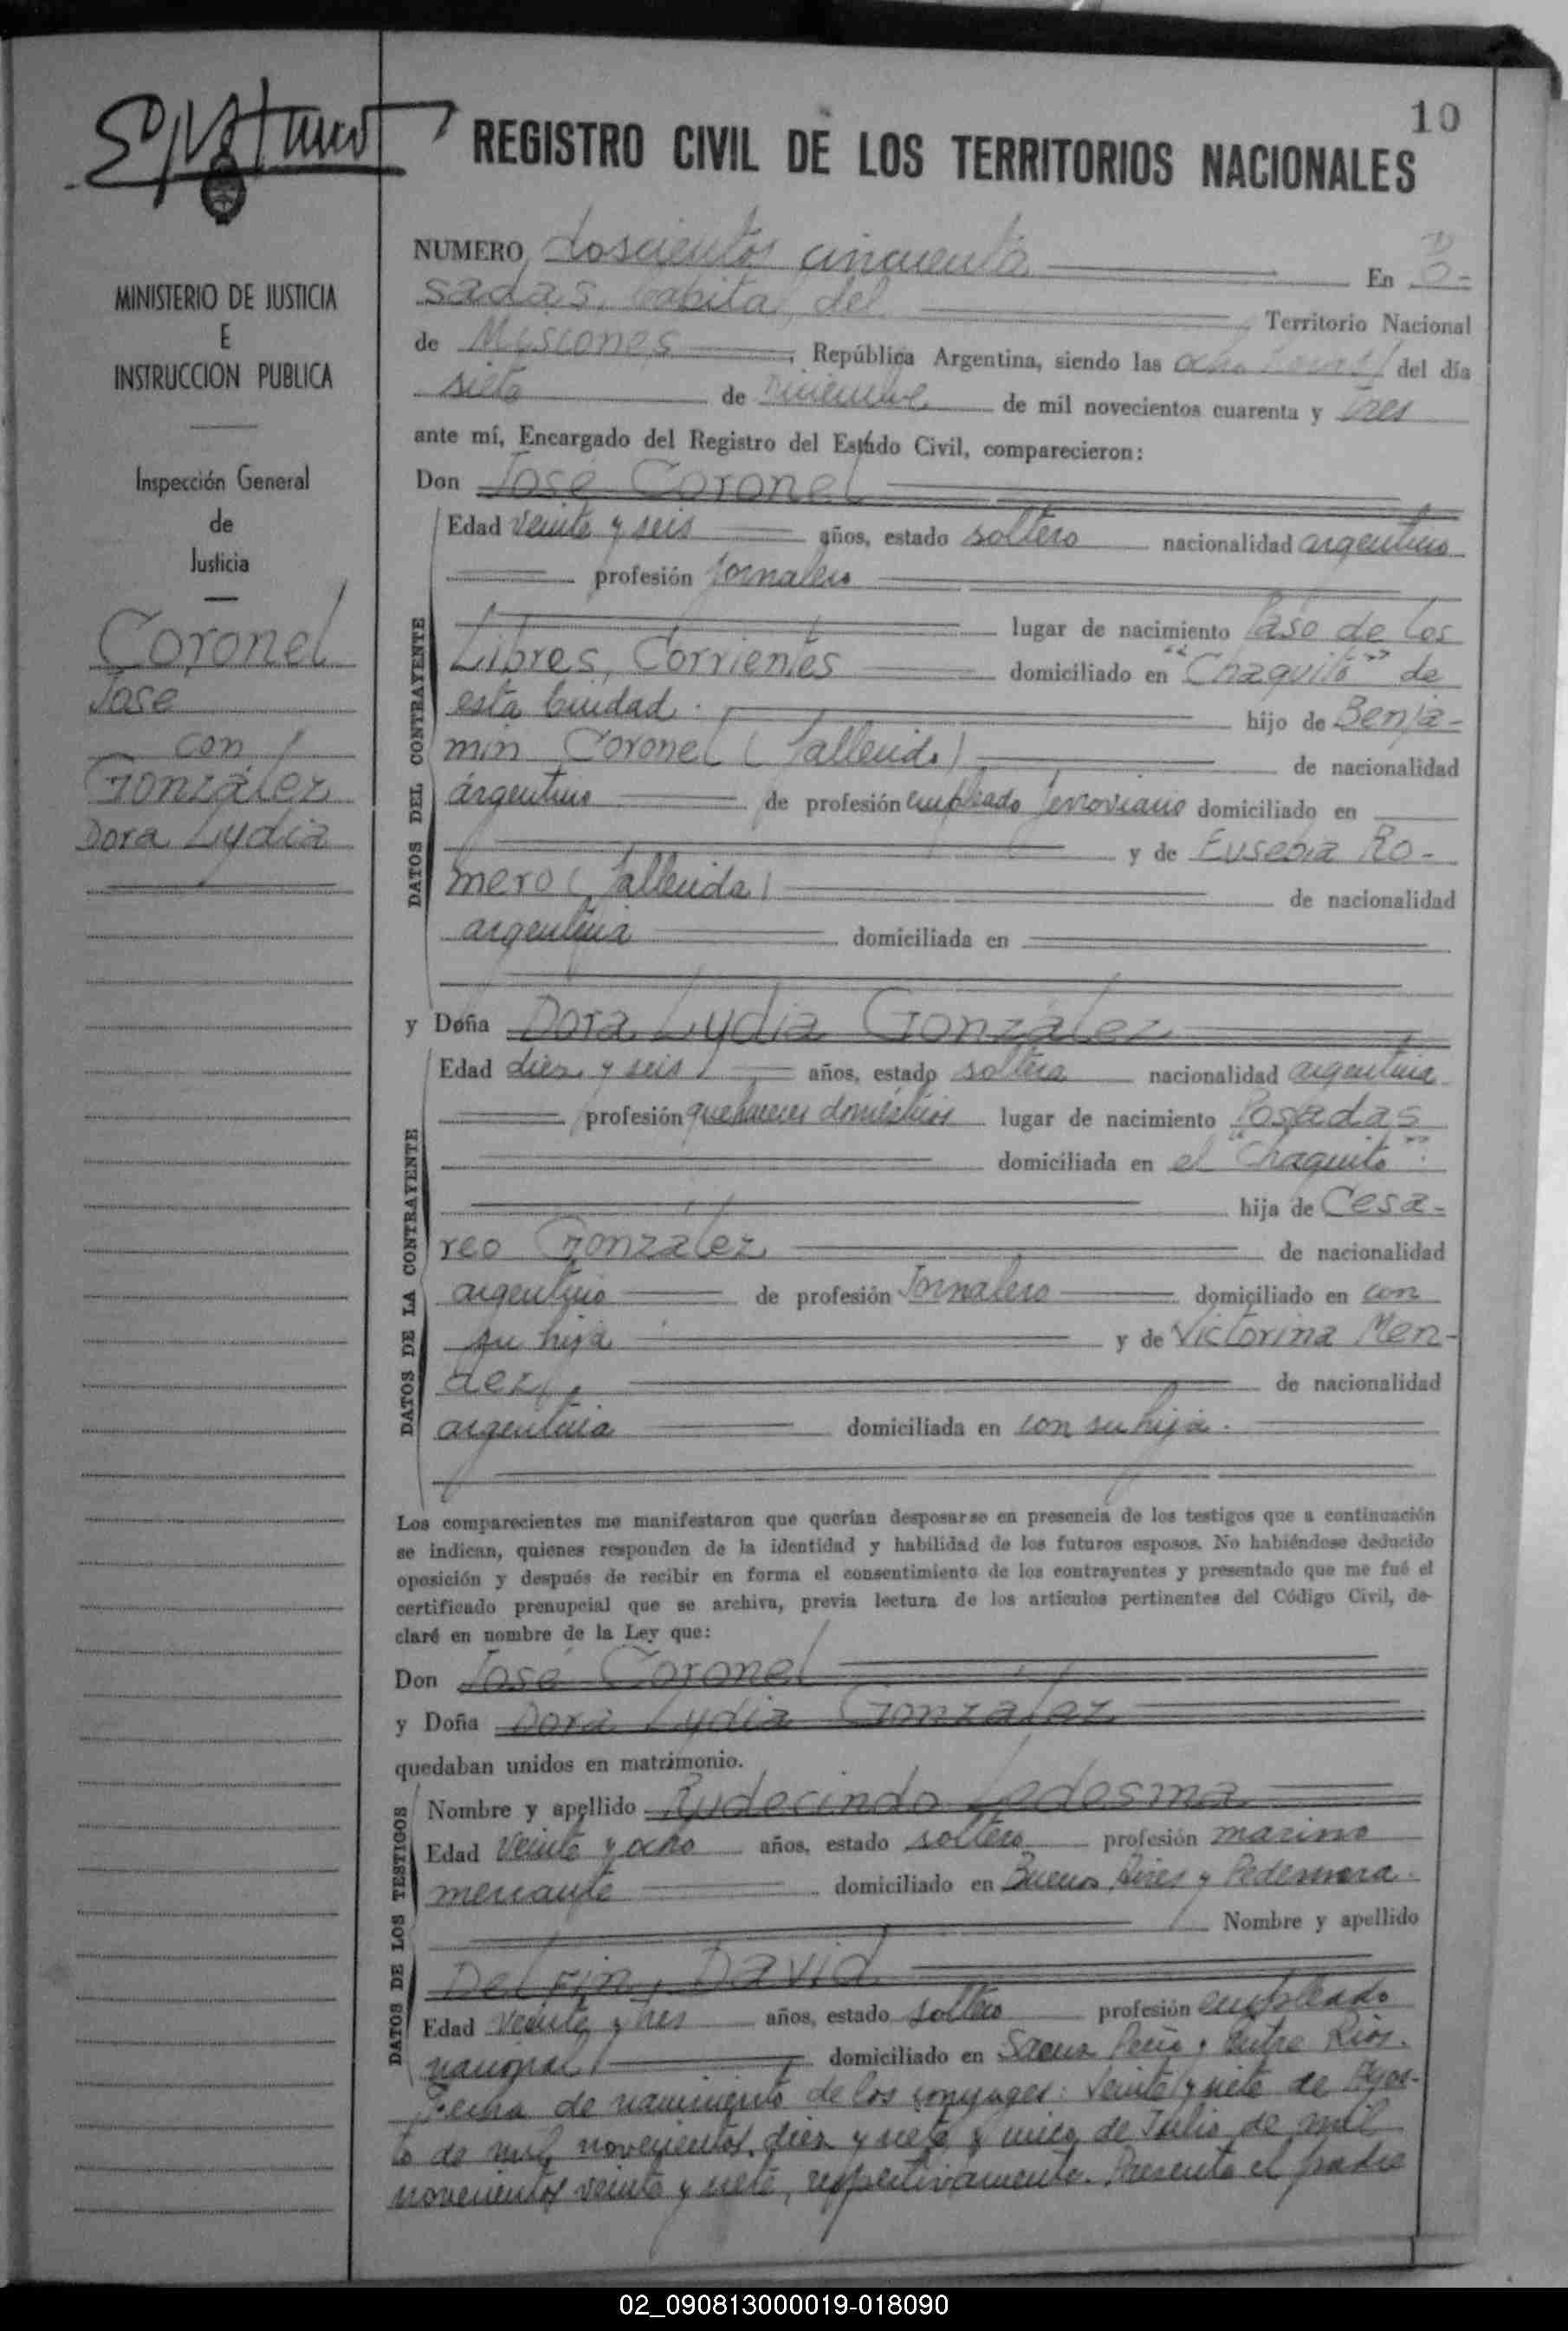 10
REGISTRO CIVIL DE LOS TERRITORIOS NACIONALES
MINISTERIO DE JUSTICIA
E
INSTRUCCION PUBLICA
Inspección General
de
Justicia
Coronel
Jose
con
González
Dora Lydia
NUMERO doscientos cincuenta En Po-
sadas, Capital del Territorio Nacional
de Misiones, República Argentina, siendo las ocho horas del día
siete de diciembre de mil novecientos cuarenta y tres
ante mí, Encargado del Registro del Estado Civil, comparecieron:
Don Jose Coronel
Edad veinte y seis años, estado soltero nacionalidad argentino
profesión Jornalero
lugar de nacimiento Paso de los
Libres, Corrientes domiciliado en "Chaquito" de
esta Ciudad. hijo de Benja-
min Coronel (fallecido) de nacionalidad
argentino de profesión empleado ferroviario domiciliado en
y de Eusebia Ro-
mero (fallecida) de nacionalidad
argentina domiciliada en
DATOS DEL CONTRAYENTE
y Doña Dora Lydia González
Edad diez y seis años, estado soltera nacionalidad argentina
profesión quehaceres domésticos lugar de nacimiento Posadas
domiciliada en el "Chaquito".
hija de Cesa-
reo González de nacionalidad
argentino de profesión Jornalero domiciliado en con
su hija y de Victorina Men-
dez, de nacionalidad
argentina domiciliada en con su hija.
DATOS DE LA CONTRAYENTE
Los comparecientes me manifestaron que querían desposarse en presencia de los testigos que a continuación
se indican, quienes responden de la identidad y habilidad de los futuros esposos. No habiéndose deducido
oposición y después de recibir en forma el consentimiento de los contrayentes y presentado que me fué el
certificado prenupcial que se archiva, previa lectura de los artículos pertinentes del Código Civil, de-
claré en nombre de la Ley que:
Don José Coronel
y Doña Dora Lydia González
quedaban unidos en matrimonio.
Nombre y apellido Rudecindo Ledesma
Edad veinte y ocho años, estado soltero profesión marino
mercante domiciliado en Buenos Aires y Pedernera.
Nombre y apellido
Delfin, David
Edad veinte y tres años, estado soltero profesión empleado
nacional domiciliado en Saenz Peña y Entre Rios.
DATOS DE LOS TESTIGOS
Fecha de nacimiento de los conyuges: Veinte y siete de Agos-
to de mil novecientos diez y siete y cinco de Julio de mil
novecientos veinte y siete, respectivamente. Presente el padre
02_090813000019-018090